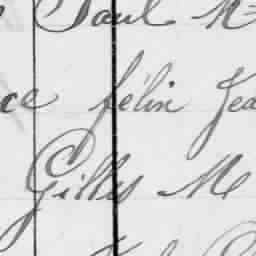 Paul M
ce félin Jea
Gilles M